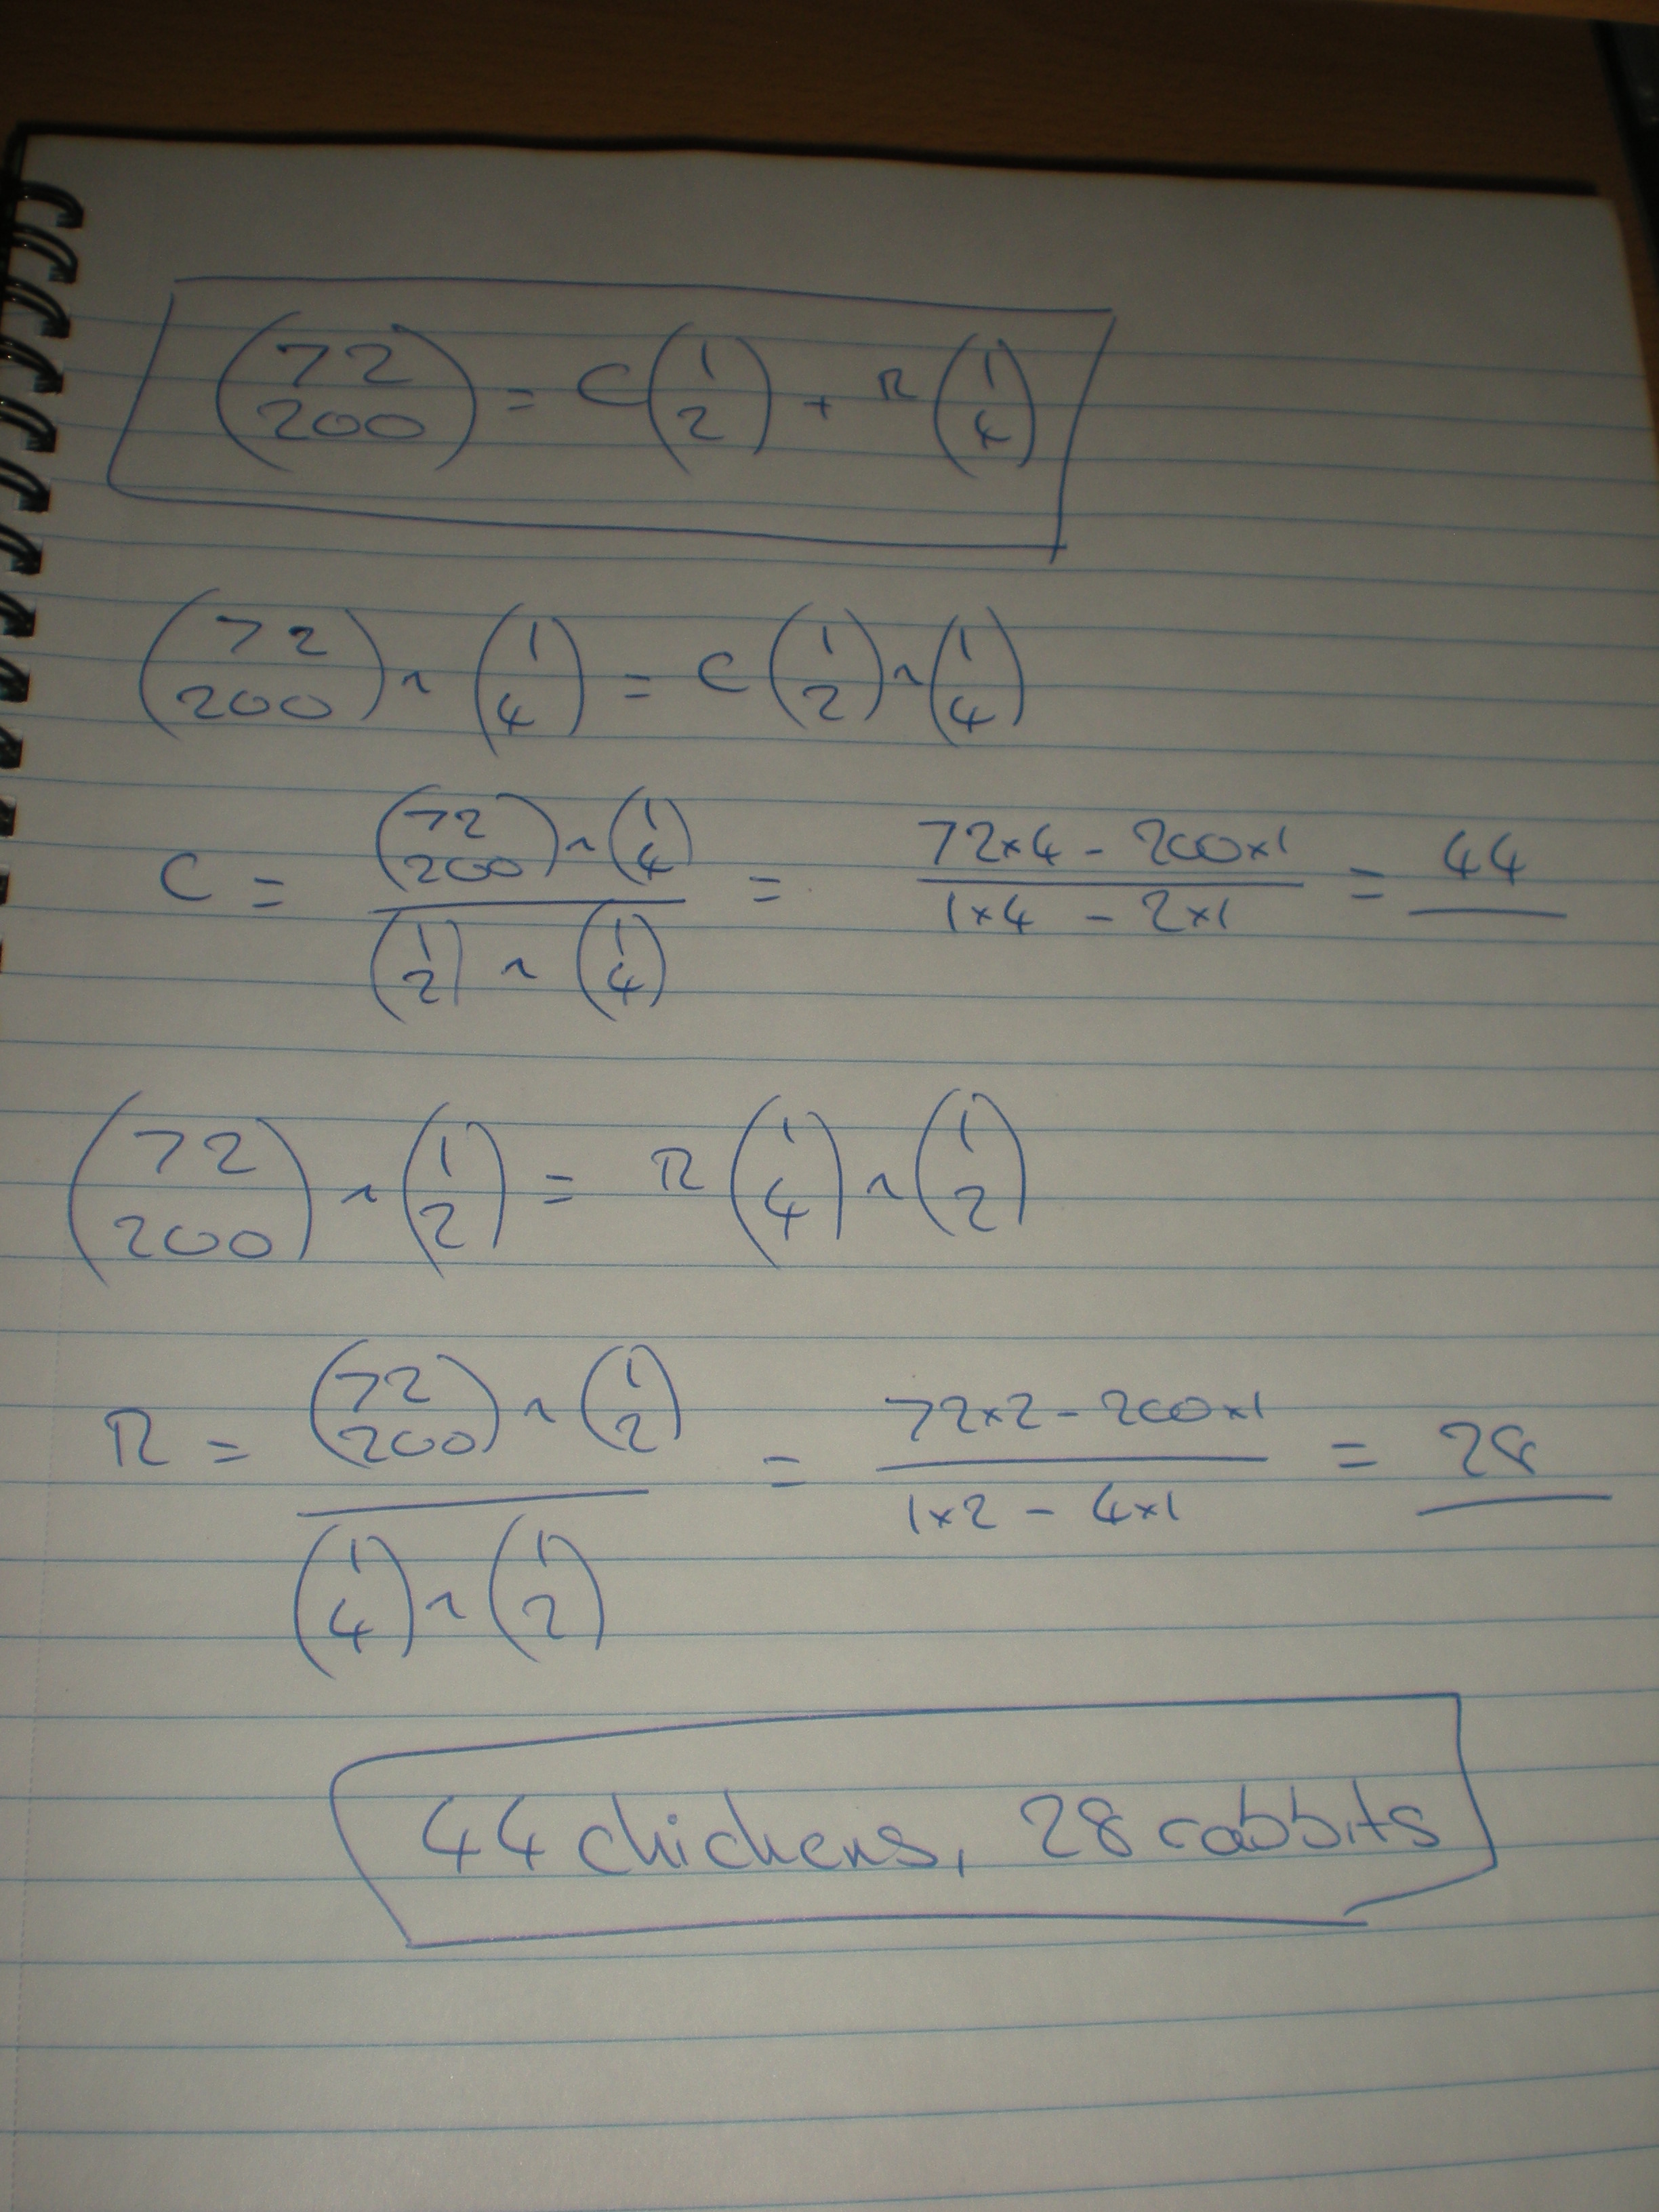 (72 200) = C(1 2) + R(1 4)
(72 200) ∧ (1 4) = C(1 2) ∧ (1 4)
C = (72 200) ∧ (1 4) / (1 2) ∧ (1 4) = 72×4 - 200×1 / 1×4 - 2×1 = 44
(72 200) ∧ (1 2) = R(1 4) ∧ (1 2)
R = (72 200) ∧ (1 2) / (1 4) ∧ (1 2) = 72×2 - 200×1 / 1×2 - 4×1 = 28
44 chickens, 28 rabbits